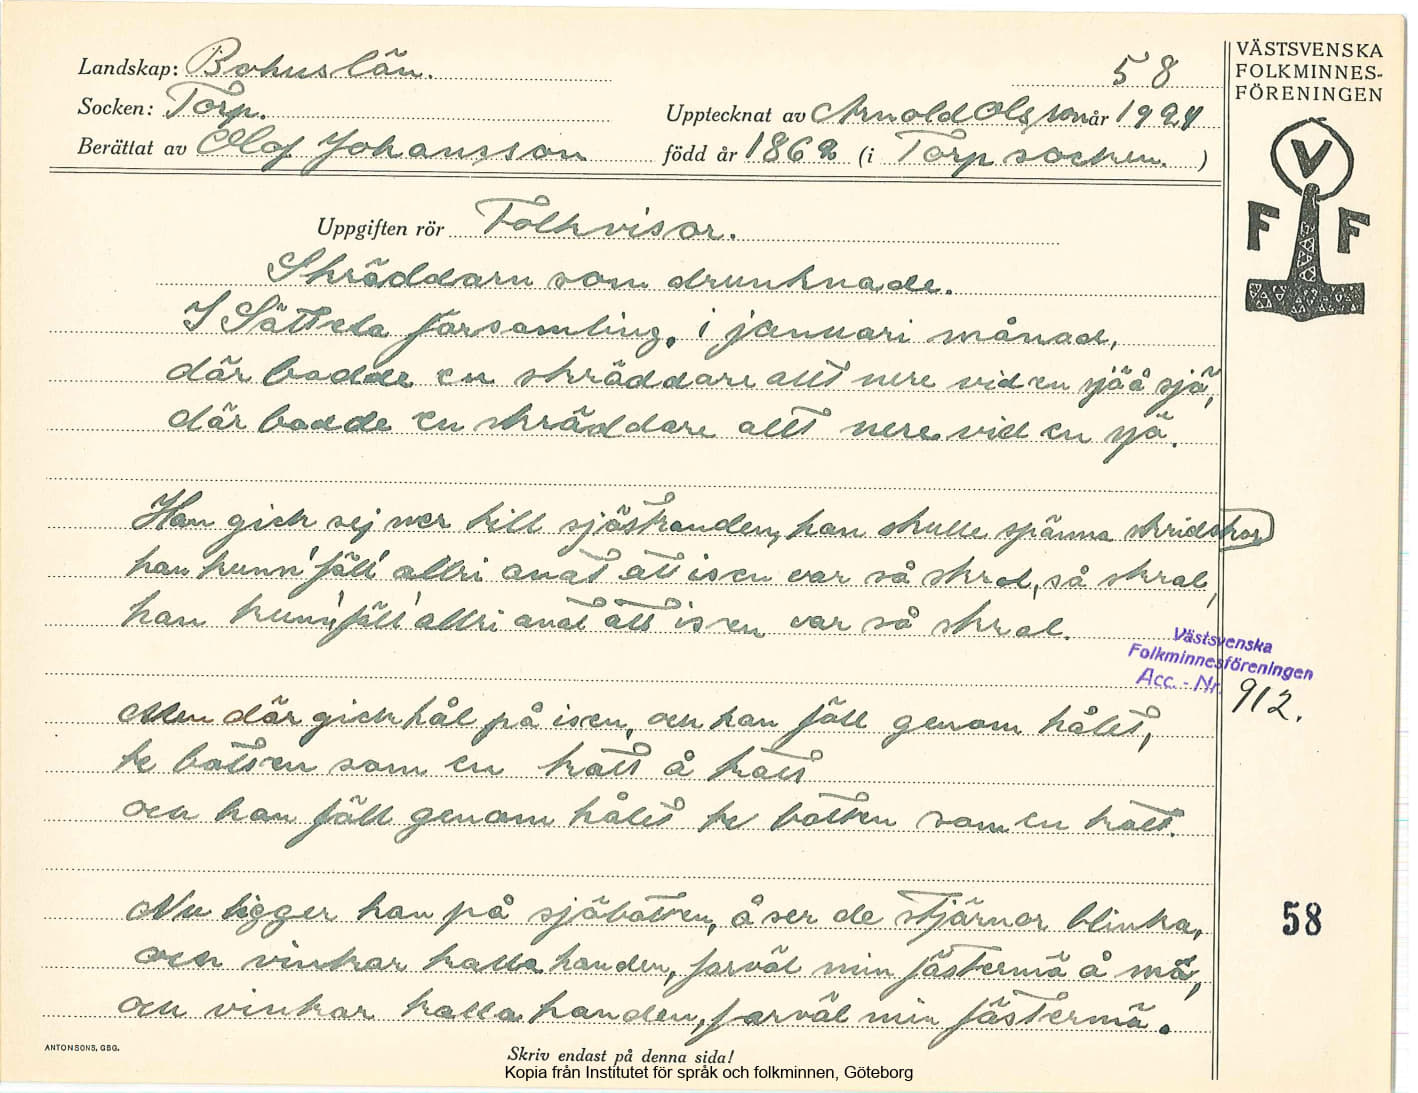 Landskap: Bohuslän.
58
VÄSTSVENSKA
FOLKMINNES-
FÖRENINGEN
Socken: Torp.
Upptecknat av Arnold Olsson år 1924
Berättat av Olof Johansson född år 1862 (i Torp socken. )
V
F F
Uppgiften rör Folkvisor.
Skräddarn som drunknade.
I Sättela församling, i januari månad,
där bodde en skräddare allt nere vid en sjö å sjö,
där bodde en skräddare allt nere vid en sjö.
Han gick sej ner till sjöstranden, han skulle spänna skridskor
han kunn' fäll' allri anat att isen var så skral, så skral,
han kunn' fäll' allri anat att isen var så skral.
Västsvenska
Folkminnesföreningen
Acc. - Nr. 912.
Men där gick hål på isen, och han föll genom hålet,
te bottsen som en kott å kott
och han föll genom hålet te botten som en kott.
Nu ligger han på sjöbotten, å ser de stjärnor blinka,
58
och vinkar kalla handen, farväl min fästermö å mö,
och vinkar kalla handen, farväl min fästermö.
ANTONSONS, GBG.
Skriv endast på denna sida!
Kopia från Institutet för språk och folkminnen, Göteborg